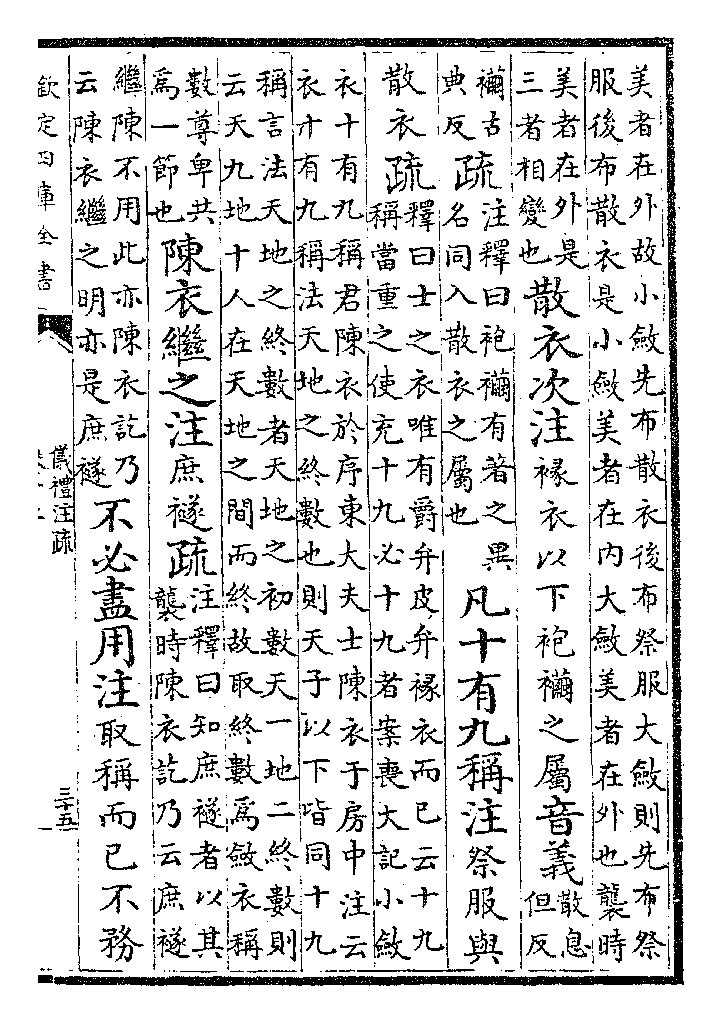 美者在外故小斂先布散衣後布祭服大斂則先布祭
服後布散衣是小斂美者在内大斂美者在外也襲時
美者在外是
三者相變也
散衣次注褖衣以下袍襺之屬音義
散息
但反
襺古
典反
疏
注釋曰袍襺有著之異
名同入散衣之屬也
凡十有九稱注祭服與
散衣疏
釋曰士之衣唯有爵弁皮弁褖衣而已云十九
稱當重之使充十九必十九者案喪大記小斂
衣十有九稱君陳衣於序東大夫士陳衣于房中注云
衣十有九稱法天地之終數也則天子以下皆同十九
稱言法天地之終數者天地之初數天一地二終數則
云天九地十人在天地之間而終故取終數爲斂衣稱
數尊卑共
爲一節也
陳衣繼之注庶襚疏
注釋曰知庶襚者以其
襲時陳衣訖乃云庶襚
繼陳不用此亦陳衣訖乃
云陳衣繼之明亦是庶襚
不必盡用注取稱而已不務
欽定四庫全書
儀禮注疏
三十五